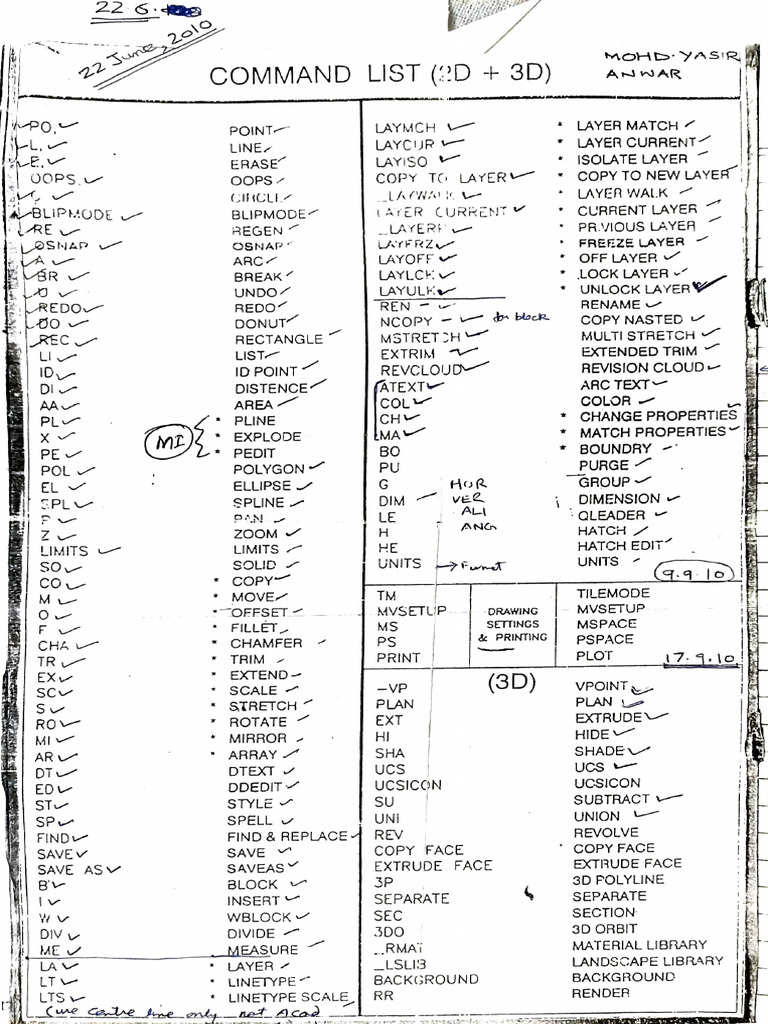 22.6.
22 June, 2010
MOHD. YASIR
ANWAR
COMMAND LIST (2D + 3D)
PO. POINT
L. LINE
E. ERASE
OOPS. OOPS
CIRCLE
BLIPMODE BLIPMODE
RE REGEN
OSNAP OSNAP
A ARC
BR BREAK
U UNDO
REDO REDO
DO DONUT
REC RECTANGLE
LI LIST
ID ID POINT
DI DISTENCE
AA AREA
PL * PLINE
X * EXPLODE
MI
PE * PEDIT
POL POLYGON
EL ELLIPSE
SPL SPLINE
P PAN
Z ZOOM
LIMITS LIMITS
SO SOLID
CO * COPY
M * MOVE
O * OFFSET
F * FILLET
CHA * CHAMFER
TR * TRIM
EX * EXTEND
SC * SCALE
S * STRETCH
RO * ROTATE
MI * MIRROR
AR * ARRAY
DT DTEXT
ED DDEDIT
ST STYLE
SP SPELL
FIND FIND & REPLACE
SAVE SAVE
SAVE AS SAVEAS
B BLOCK
I INSERT
W WBLOCK
DIV DIVIDE
ME MEASURE
LA * LAYER
LT * LINETYPE
LTS * LINETYPE SCALE
(use centre line only not Acad
LAYMCH * LAYER MATCH
LAYCUR * LAYER CURRENT
LAYISO * ISOLATE LAYER
COPY TO LAYER * COPY TO NEW LAYER
_LAYWALK * LAYER WALK
LAYER CURRENT * CURRENT LAYER
_LAYERP * PREVIOUS LAYER
LAYFRZ * FREEZE LAYER
LAYOFF * OFF LAYER
LAYLCK * LOCK LAYER
LAYULK * UNLOCK LAYER
REN RENAME
NCOPY for block COPY NASTED
MSTRETCH MULTI STRETCH
EXTRIM EXTENDED TRIM
REVCLOUD REVISION CLOUD
ATEXT ARC TEXT
COL COLOR
CH * CHANGE PROPERTIES
MA * MATCH PROPERTIES
BO * BOUNDRY
PU PURGE
G HOR GROUP
DIM VER DIMENSION
LE ALI QLEADER
H ANG HATCH
HE HATCH EDIT
UNITS UNITS
9.9.10
TM TILEMODE
MVSETUP MVSETUP
MS MSPACE
PS PSPACE
PRINT PLOT 17.9.10
DRAWING
SETTINGS
& PRINTING
(3D)
-VP VPOINT
PLAN PLAN
EXT EXTRUDE
HI HIDE
SHA SHADE
UCS UCS
UCSICON UCSICON
SU SUBTRACT
UNI UNION
REV REVOLVE
COPY FACE COPY FACE
EXTRUDE FACE EXTRUDE FACE
3P 3D POLYLINE
SEPARATE SEPARATE
SEC SECTION
3DO 3D ORBIT
_RMAT MATERIAL LIBRARY
_LSLIB LANDSCAPE LIBRARY
BACKGROUND BACKGROUND
RR RENDER